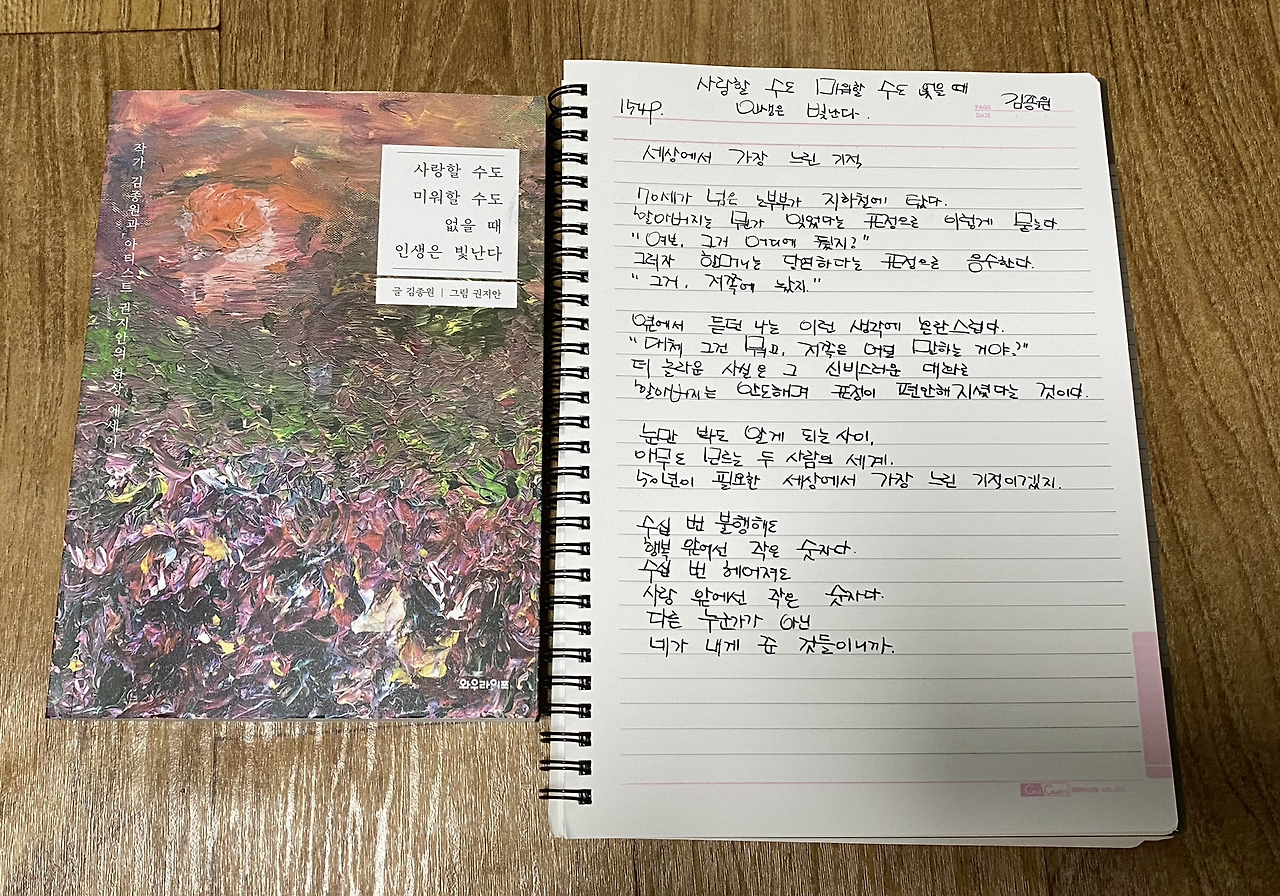 작가 김종원과 아티스트 권지안의 환상 에세이
사랑할 수도
미워할 수도
없을 때
인생은 빛난다
글 김종원 | 그림 권지안
와우라이프
사랑할 수도 미워할 수도 없을 때
인생은 빛난다.
김종원
154p.
PAGE
DATE
세상에서 가장 느린 기적
70세가 넘은 노부부가 지하철에 탔다.
할아버지는 뭔가 잊었다는 표정으로 이렇게 묻는다
"여보, 그거 어디에 뒀지?"
그러자 할머니는 당연하다는 표정으로 응수한다.
"그거, 저쪽에 놨지."
옆에서 듣던 나는 이런 생각에 혼란스럽다.
"대체 그건 뭐고, 저쪽은 어딜 말하는 거야?"
더 놀라운 사실은 그 신비스러운 대화로
할아버지는 안도하며 표정이 편안해지셨다는 것이다.
눈만 봐도 알게 되는 사이,
아무도 모르는 두 사람의 세계.
50년이 필요한 세상에서 가장 느린 기적이겠지.
수십 번 불행해도
행복 앞에선 작은 숫자다.
수십 번 헤어져도
사랑 앞에선 작은 숫자다.
다른 누군가가 아닌
네가 내게 준 것들이니까.